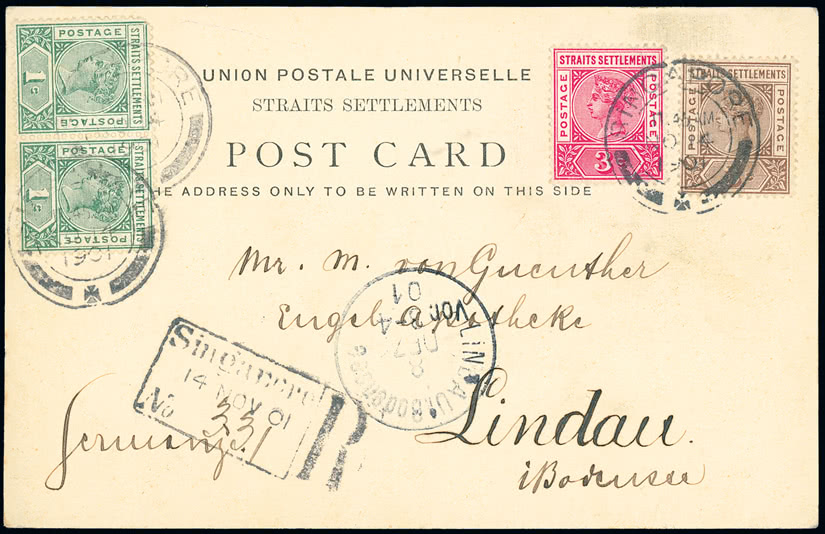 UNION POSTALE UNIVERSELLE
STRAITS SETTLEMENTS
POST CARD
THE ADDRESS ONLY TO BE WRITTEN ON THIS SIDE
POSTAGE
STRAITS SETTLEMENTS
1c
POSTAGE
POSTAGE
STRAITS SETTLEMENTS
1c
POSTAGE
1901
STRAITS SETTLEMENTS
POSTAGE
POSTAGE
3
STRAITS SETTLEMENTS
POSTAGE
POSTAGE
SINGAPORE
1901
Mr. M. von Guenther
Engel Apotheke
Lindau.
i/Bodensee
Germany.
LINDAU
Vor.
8 DEZ
01
Singapore
14 NOV 01
No 331
R